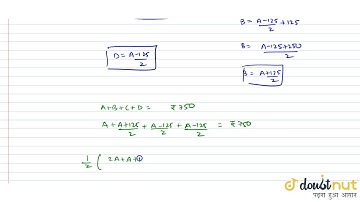 B = A-125/2 + 125
D = A-125/2
B = A-125+250/2
B = A+125/2
A+B+C+D = ₹750
A + A+125/2 + A-125/2 + A-125/2 = ₹750
1/2 ( 2A+A+
doubtnut
पढ़ना हुआ आसान